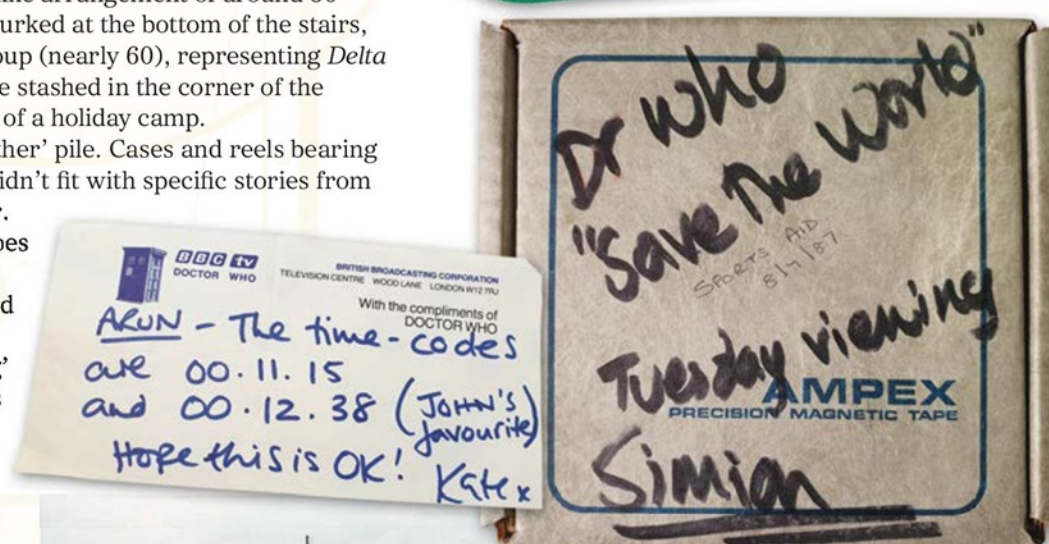 urked at the bottom of the stairs,
oup (nearly 60), representing Delta
e stashed in the corner of the
of a holiday camp.
ther’ pile. Cases and reels bearing
idn’t fit with specific stories from
BBC tv
DOCTOR WHO
BRITISH BROADCASTING CORPORATION
TELEVISION CENTRE WOOD LANE LONDON W12 7RJ
With the compliments of
DOCTOR WHO
ARUN - The time-codes
are 00.11.15
and 00.12.38 (JOHN'S
favourite)
Hope this is OK!
Kate x
Dr Who
"Save The World"
SPORTS AID
Tuesday viewing
AMPEX
PRECISION MAGNETIC TAPE
Simian